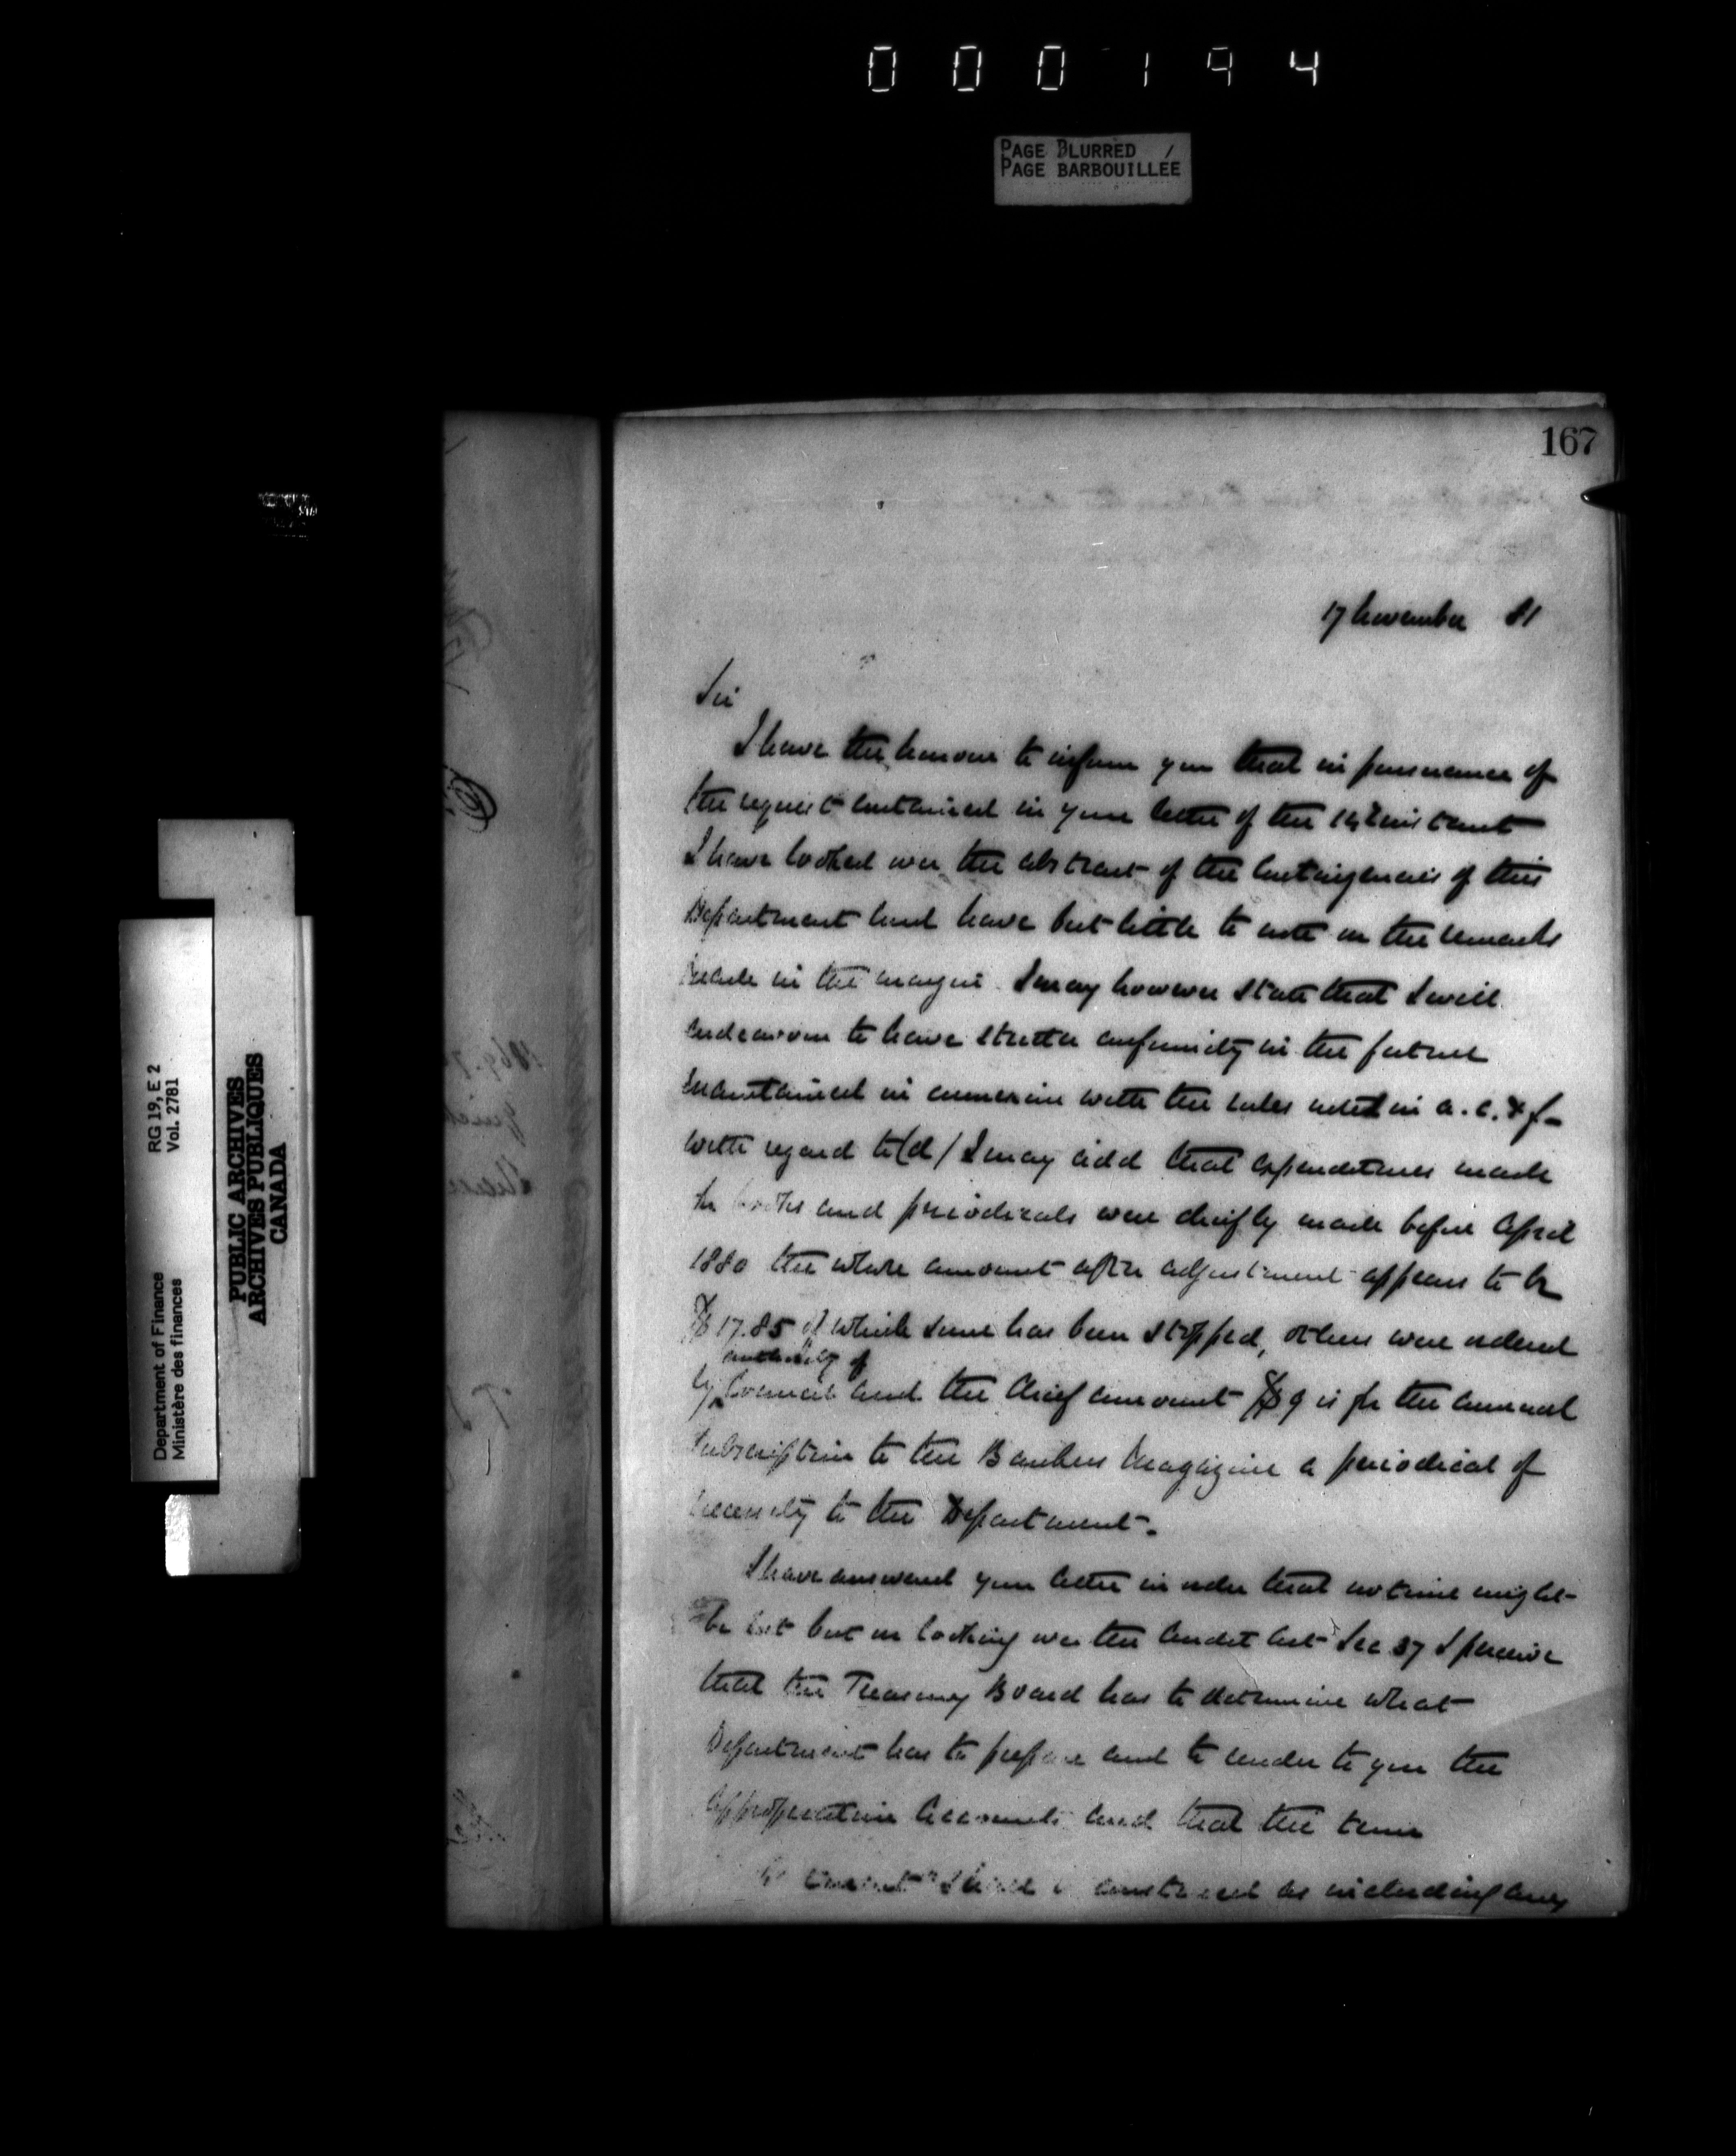 000194
PAGE BLURRED /
PAGE BARBOUILLÉE
167
17 November 81
Sir
I have the honour to inform you that in pursuance of
the request contained in your letter of the instant
I have looked over the abstract of the Contingencies of this
Department and have but little to note on the remarks
made in the margin. I may however state that I will
endeavour to have stricter conformity in the future
maintained in connexion with the rules noted in a. c. & f-
with regard to (d) I may add that expenditures made
for books and periodicals were chiefly made before April
1880 the whole amount after adjustment appears to be
$17.85 of which some has been stopped, others were ordered
authority of
by Council and the chief amount $9 is for the annual
subscription to the Bankers Magazine a periodical of
necessity to the Department.
I have answered your letter in order that no time might
be lost but on looking over the Audit Act Sec 37 I perceive
that the Treasury Board has to determine what
Department has to prepare and to render to you the
appropriation Accounts and that the term
should be construed as including any
Department of Finance RG 19, E 2
Ministère des finances Vol. 2781
PUBLIC ARCHIVES
ARCHIVES PUBLIQUES
CANADA